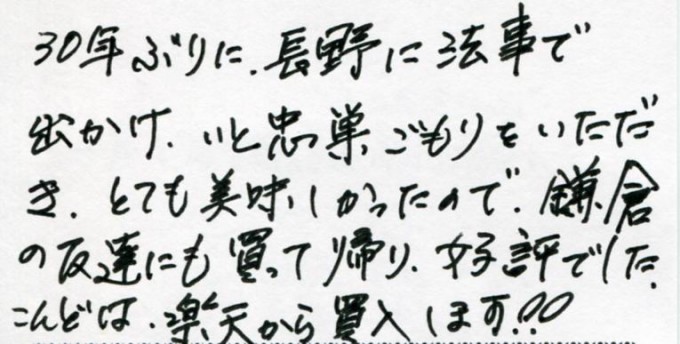 30年ぶりに、長野に法事で
出かけ、いと忠巣ごもりをいただ
き、とても美味しかったので、鎌倉
の友達にも買って帰り、好評でした。
こんどは、楽天から買入します!!